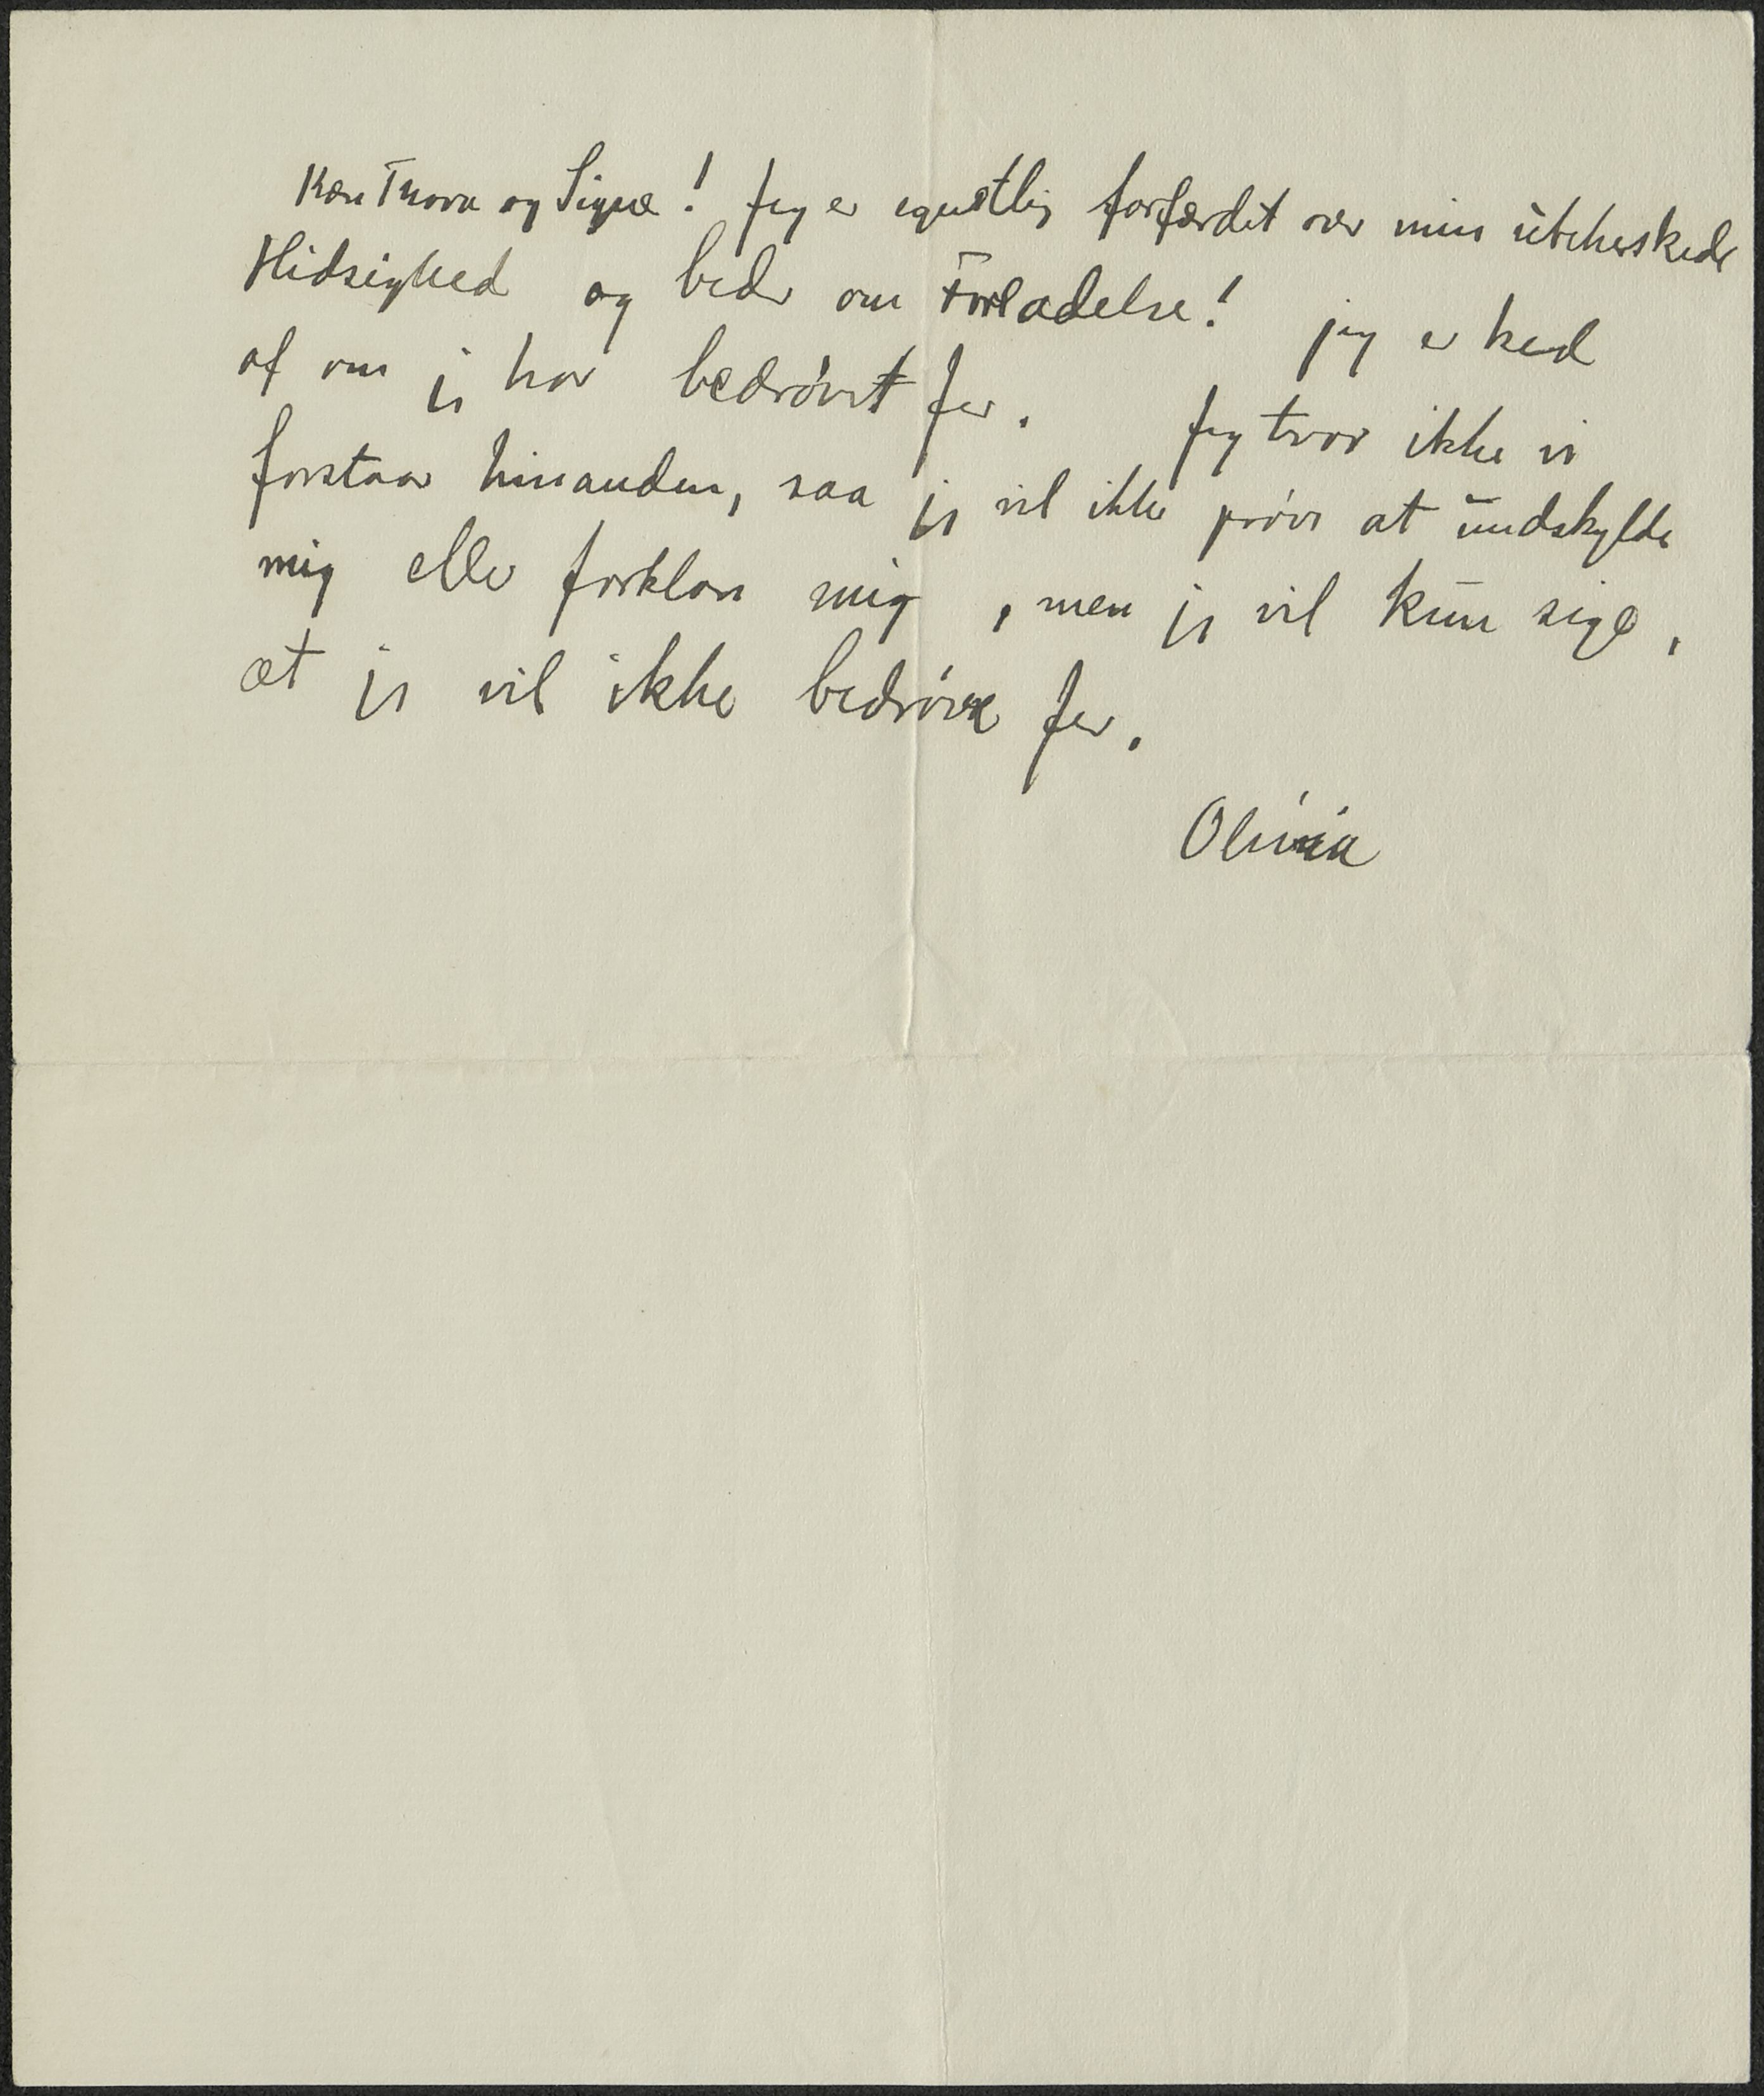 Kære Thora og Signe! Jeg er egentlig forfærdet over min ubeherskede
Hidsighed og beder om Forladelse! jeg er ked
af om jeg har bedrøvet Jer. Jeg tror ikke vi
forstaar hinanden, saa jeg vil ikke prøve at undskylde
mig eller forklare mig, men jeg vil kun sige,
at jeg vil ikke bedrøve Jer.
Olivia